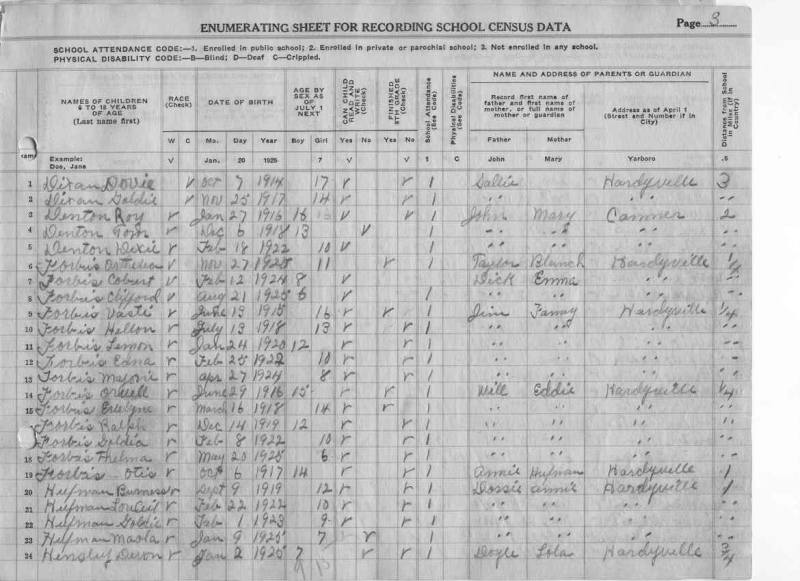 ENUMERATING SHEET FOR RECORDING SCHOOL CENSUS DATA
Page 3
SCHOOL ATTENDANCE CODE:—1. Enrolled in public school; 2. Enrolled in private or parochial school; 3. Not enrolled in any school.
PHYSICAL DISABILITY CODE:—B—Blind; D—Deaf C—Crippled.
NAMES OF CHILDREN 6 TO 18 YEARS OF AGE (Last name first) RACE (Check) W C DATE OF BIRTH Mo. Day Year AGE BY SEX AS OF JULY 1 NEXT Boy Girl CAN CHILD READ AND WRITE (Check) Yes No FINISHED 8TH GRADE (Check) Yes No School Attendance (See Code) Physical Disabilities (See Code) NAME AND ADDRESS OF PARENTS OR GUARDIAN Record first name of father and first name of mother, or full name of mother or guardian Father Mother Address as of April 1 (Street and Number if in City) Distance from School in Miles (if in Country)
Example: Doe, Jane V Jan. 20 1925 7 V V 1 C John Mary Yarboro .5
1 Dixan Dovie v Oct 7 1914 17 v r 1 Sallie Hardyville 3
2 Dixan Goldie v Nov 25 1917 14 r r 1 " "
3 Denton Roy r Jan 27 1916 16 v v 1 John Mary Canmer 2
4 Denton Tom r Dec 6 1918 13 v " " "
5 Denton Dixie r Feb 18 1922 10 v " " "
6 Forbis r Nov 27 1920 11 r 1 Taylor Blanch Hardyville
Forbis Cobert r Feb 12 1924 8 v Dick Emma " "
8 Forbis Clifford r Aug 21 1925 6 r 1 " " "
9 Forbis Vasti r June 13 1915 16 r r 1 Jim Fanny Hardyville 1/4
10 Forbis Hellon r July 13 1918 13 r r 1 " " "
11 Forbis Lemon r Jan 24 1920 12 r r 1 " " "
12 Forbis Edna r Feb 25 1922 10 r r 1 " " "
13 Forbis Majorie r Apr 27 1924 8 r r 1 " " "
14 Forbis Orwell r June 29 1916 15 r r 1 Will Eddie Hardyville 1/4
15 Forbis Evelyne r March 16 1918 14 r r 1 " " "
Forbis Ralph r Dec 14 1919 12 r r 1 " " "
Forbis Goldia r Feb 8 1922 10 r r 1 " " "
18 Forbis Thelma r May 20 1925 6 r r 1 " " "
19 Forbis Otis r Oct 6 1917 14 r r 1 Annie Hufman Hardyville 1
20 Hufman Burness r Sept 9 1919 12 r r 1 Dossie Annie Hardyville 1
21 Hufman r Feb 22 1922 10 r r 1 " " "
22 Hufman Goldie r Feb 1 1923 9 r r 1 " " "
23 Hufman Maola r Jan 9 1925 7 r r 1 " " "
24 Hensley Devon r Jan 2 1925 7 r r 1 Doyle Lola Hardyville 3/4